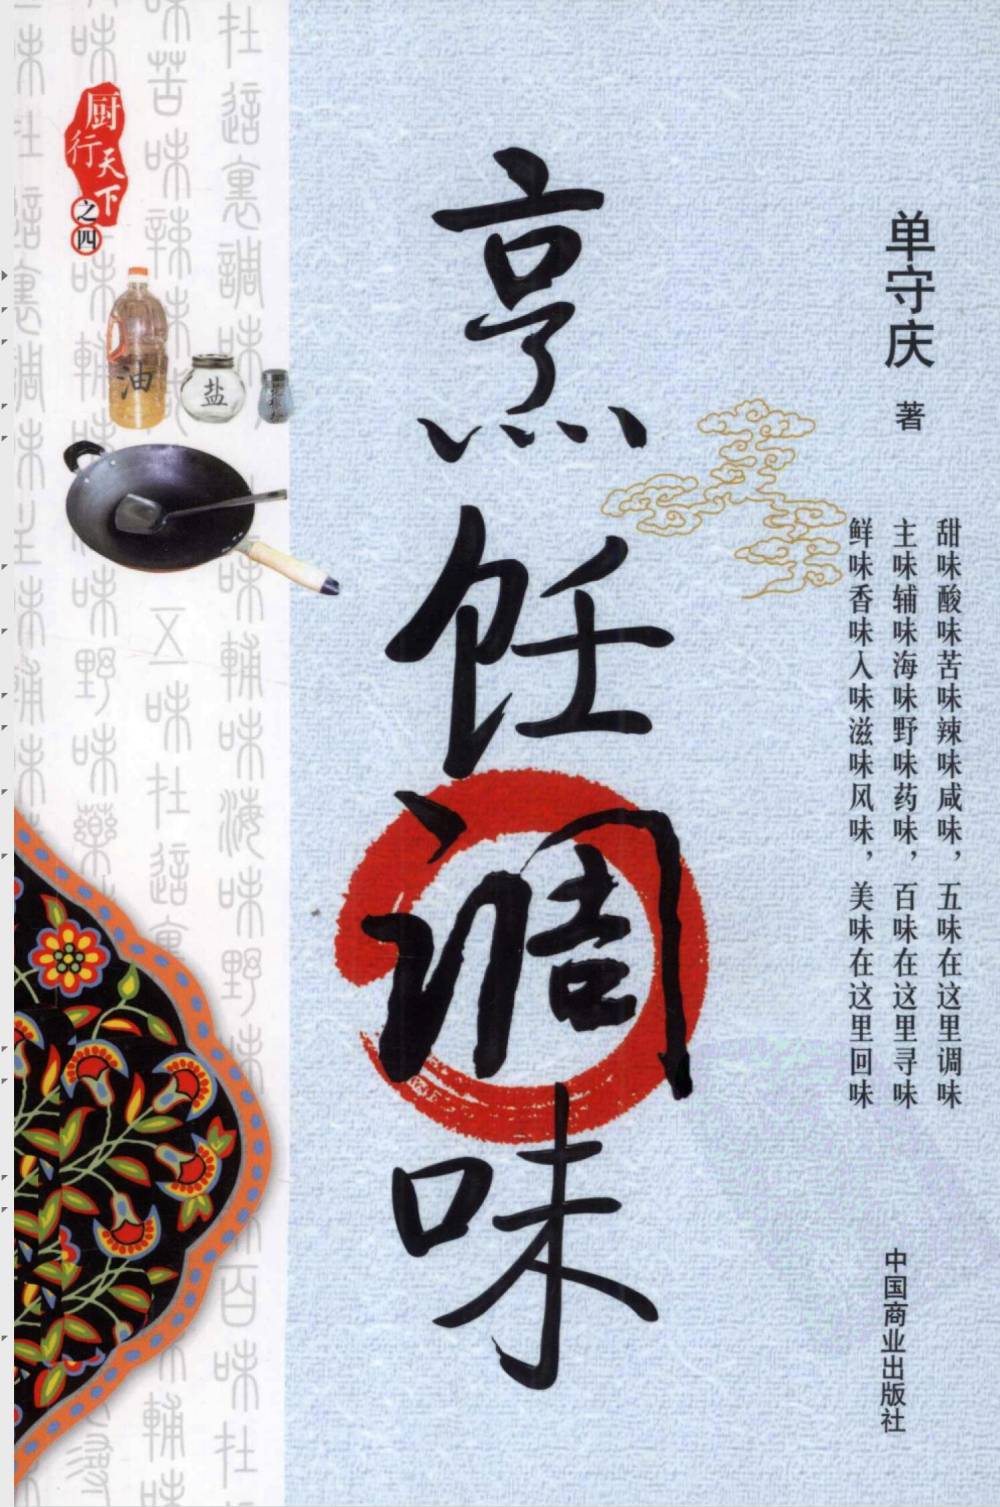 单守庆 著
甜味酸味苦味辣味咸味，五味在这里调味
主味辅味海味野味药味，百味在这里寻味
鲜味香味入味滋味风味，美味在这里回味
烹饪调味
中国商业出版社
厨行天下
之四
油
盐